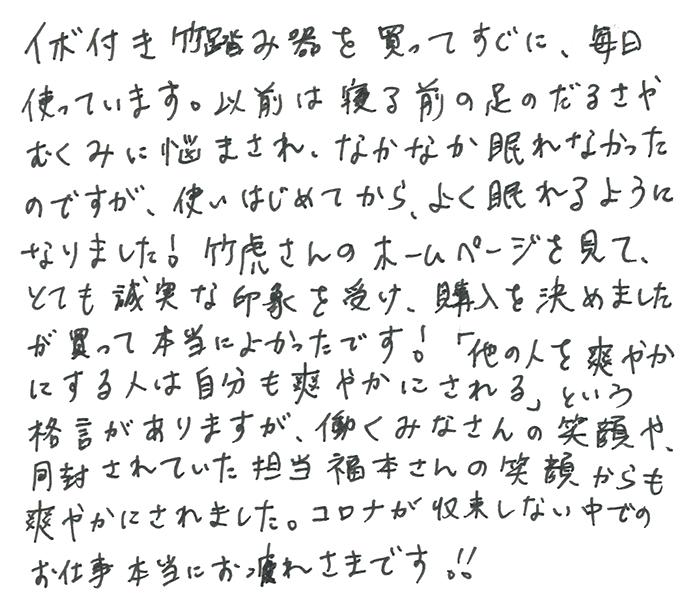 イボ付き竹踏み器を買ってすぐに、毎日
使っています。以前は寝る前の足のだるさや
むくみに悩まされ、なかなか眠れなかった
のですが、使いはじめてから、よく眠れるように
なりました!竹虎さんのホームページを見て、
とても誠実な印象を受け、購入を決めました
が買って本当によかったです!「他の人を爽やか
にする人は自分も爽やかにされる」という
格言がありますが、働くみなさんの笑顔や、
同封されていた担当福本さんの笑顔からも
爽やかにされました。コロナが収束しない中での
お仕事本当にお疲れさまです!!